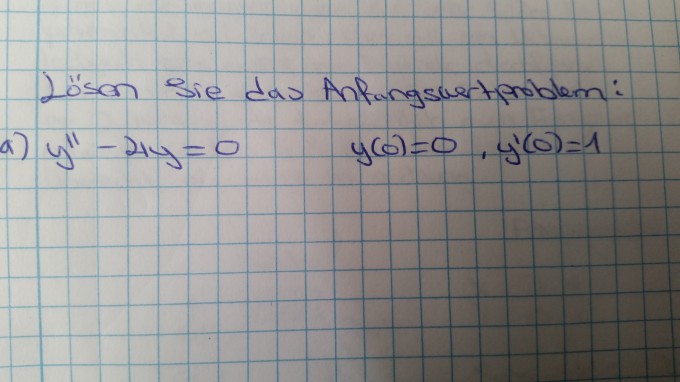 Lösen Sie das Anfangswertproblem:
a) y'' - 4y = 0 y(0)=0 , y'(0)=1